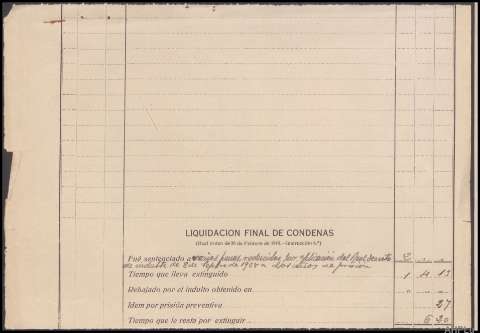 LIQUIDACION FINAL DE CONDENAS
(Real orden de de Febrero de Instrucción
Fué sentenciado a varias penas reducidas por aplicación del Real decreto 2
de indulto de de de a dos años de prisión
Tiempo que lleva extinguido 1 4 13
Rebajado por el indulto obtenido en
Idem por prisión preventiva 27
Tiempo que le resta por extinguir 6 20